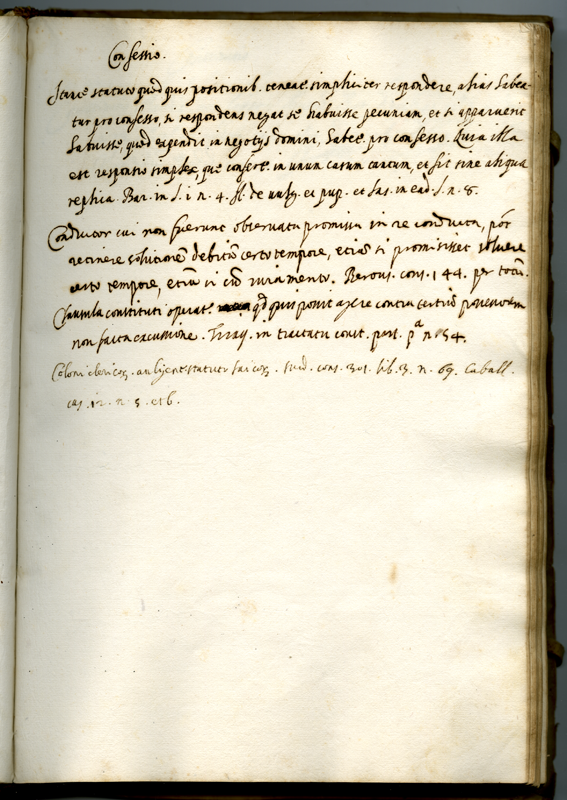 Confessio.
Stante statuto quod quis positionib. teneat. simpliciter respondere, alias habea-
tur pro confesso, si respondens negat se habuisse pecuniam, et si apparuerit
habuisse, quod expendit in negotys domini, habet. pro confesso. Quia illa
est responsio simplex, que confert. in unum casum tantum, et sit sine aliqua
replica. Bar. in l. 1 n. 4. ff. de vulg. et pup. et Jas. in ead. l. n. 8.
Conductor cui non fuerunt observata promissa in re conducta, pót
retinere solutionẽ debitã certo tempore, etiã si promisisset solvere
certo tempore, etiã si cũ iuramento. Berous. cons. 144. per totũ.
Clausula constituti operat. qđ quis possit agere contra tertiũ possessorem
non facta excussione. Tiraq. in tractatu const. part. pª n. 54.
Coloni clericoꝝ. an ligent statuta laicoꝝ. Surd. cons. 301. lib. 3. n. 69. Caball.
cas. 12. n. 5. et 6.